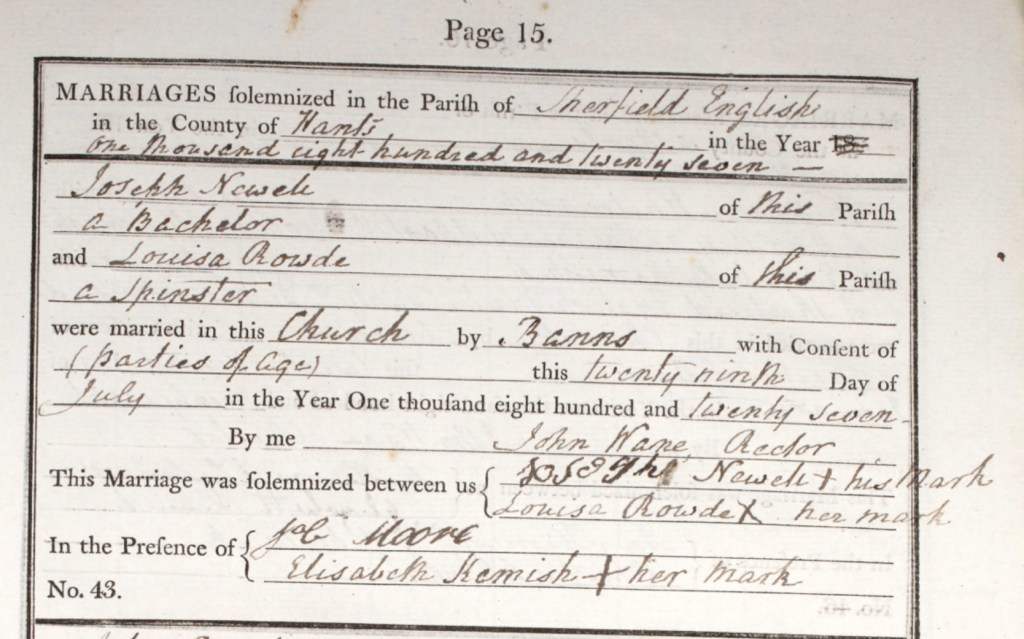 Page 15.
MARRIAGES ſolemnized in the Pariſh of Sherfield English
in the County of Hants in the Year 18
one thousand eight hundred and twenty seven —
Joseph Newell
of this Pariſh
a Bachelor
and Louisa Rowde
of this Pariſh
a Spinster
were married in this Church by Banns with Conſent of
(parties of age) this twenty ninth Day of
July in the Year One thouſand eight hundred and twenty seven
By me John Wane, Rector
This Marriage was ſolemnized between us { Newell + his Mark
Louisa Rowde X her mark
In the Preſence of { Moore
Elisabeth Kemish + her mark
No. 43.